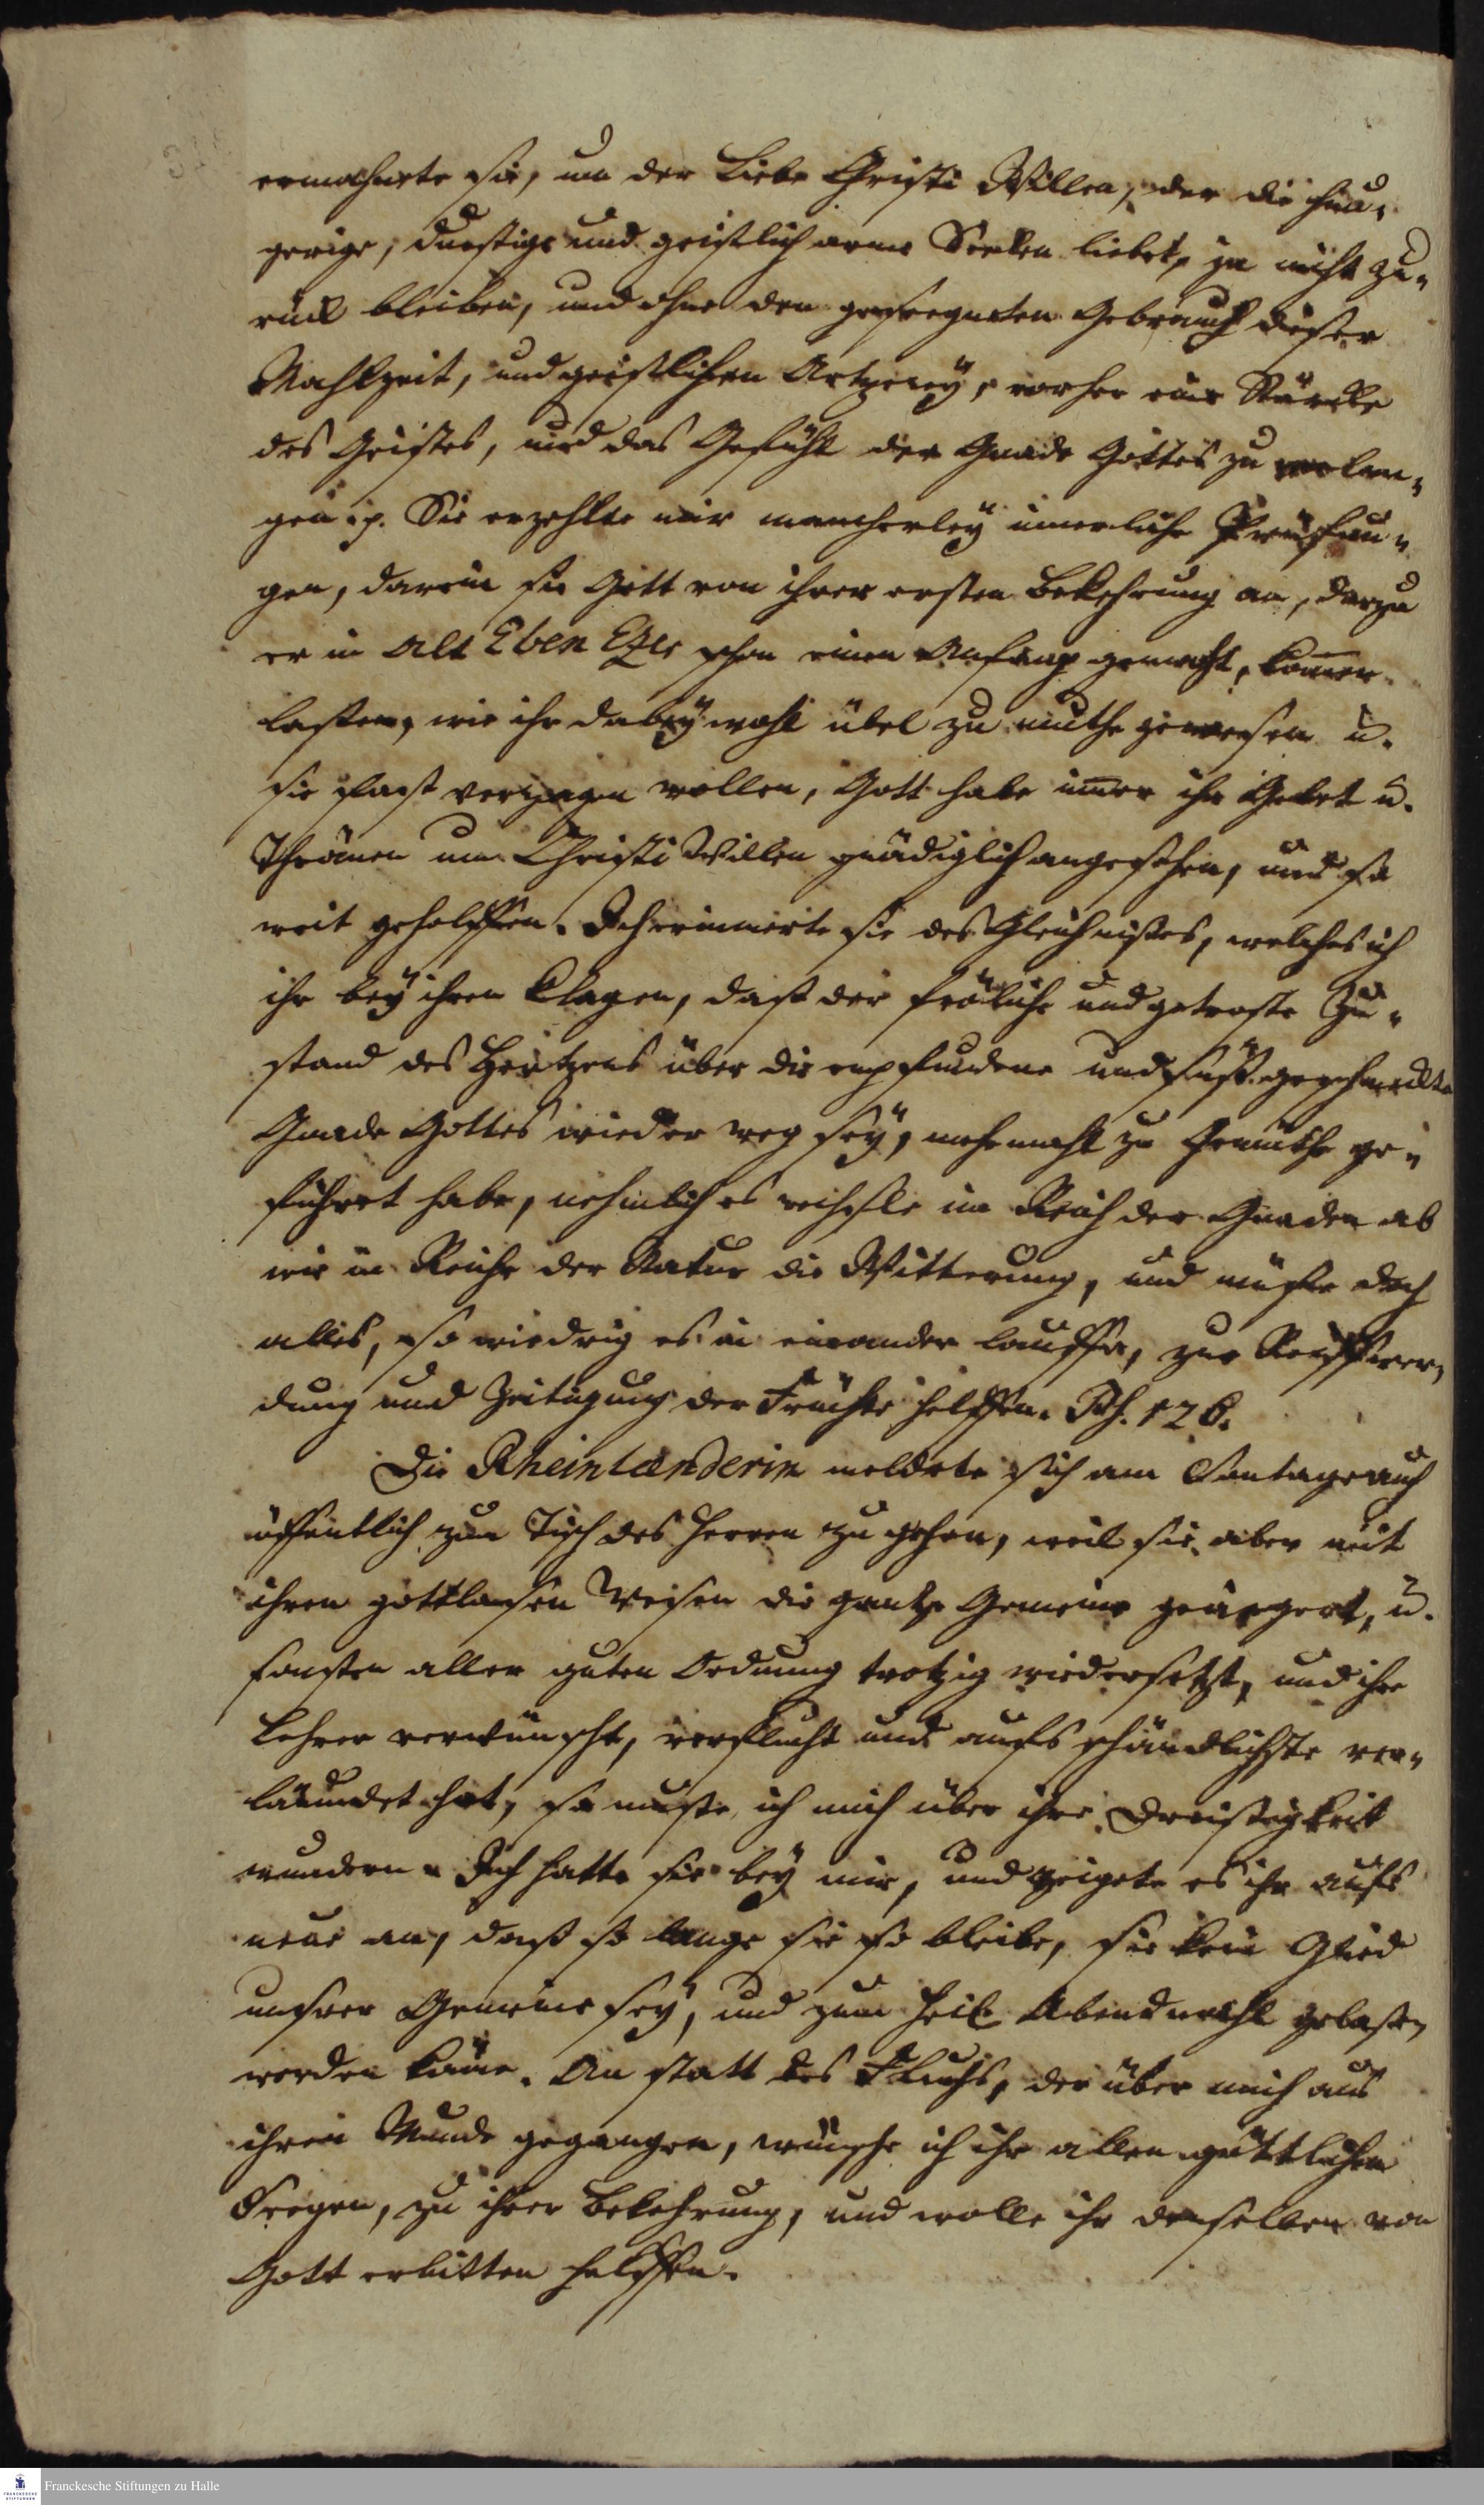 ermahnete sie, um der Liebe Christi Willen, der die hun-
gerige, durstige und geistlich arme Seelen liebet, ja nicht zu-
rück bleiben, und ohne den geseegneten Gebrauch dieser
Mahlzeit, und geistlichen Artzeney, vorher eine Stärcke
des Geistes, und das Gefühl der Gnade Gottes zu verlan-
gen p. Sie erzehlte mir mancherley innerliche Prüfun-
gen, darein sie Gott von ihrer ersten Bekehrung an, darzu
er in Alt Eben Ezer schon einen Anfang gemacht, kom̄en
lassen, wie ihr dabey wohl übel zu muthe gewesen u.
sie fast verzagen wollen, Gott habe im̄er ihr Gebet u.
Thränen um Christi Willen gnädiglich angesehen, und so
weit geholffen. Ich erinnerte sie des Gleichnißes, welches ich
ihr bey ihren Klagen, daß der fröliche und getroste Zu-
stand des Hertzens über die empfundene und süß geschmeckte
Gnade Gottes wieder weg sey, mehrmahl zu Gemüthe ge-
führet habe, nehmlich es wechsle im Reich der Gnaden ab
wie im Reiche der Natur die Witterung, und müße doch
alles, so wiedrig es in einander lauffe, zur Reiffwer-
dung und Zeitigung der Früchte helffen. Ps. 126.
Die Rheinlænderin meldete sich am Sontage auch
öffentlich zum Tisch des Herren zu gehen, weil sie aber mit
ihren gottlosen Wesen die gantze Gemeine geärgert, u.
sonsten aller guten Ordnung trotzig wiedersetzt, und ihre
Lehrer verwünscht, verflucht und aufs schändlichste ver-
läumdet hat, so muste ich mich über ihre Dreistigkeit
wundern. Ich hatte sie bey mir, und zeigete es ihr aufs
neue an, daß so lange sie so bleibe, sie kein Glied
unsrer Gemeine sey, und zum heil. Abendmahl gelaßen
werden könne. An statt des Fluchs, der über mich aus
ihren Munde gegangen, wünsche ich ihr allen göttlichen
Seegen, zu ihrer Bekehrung, und wolle ihr denselben von
Gott erbitten helffen.
Franckesche Stiftungen zu Halle